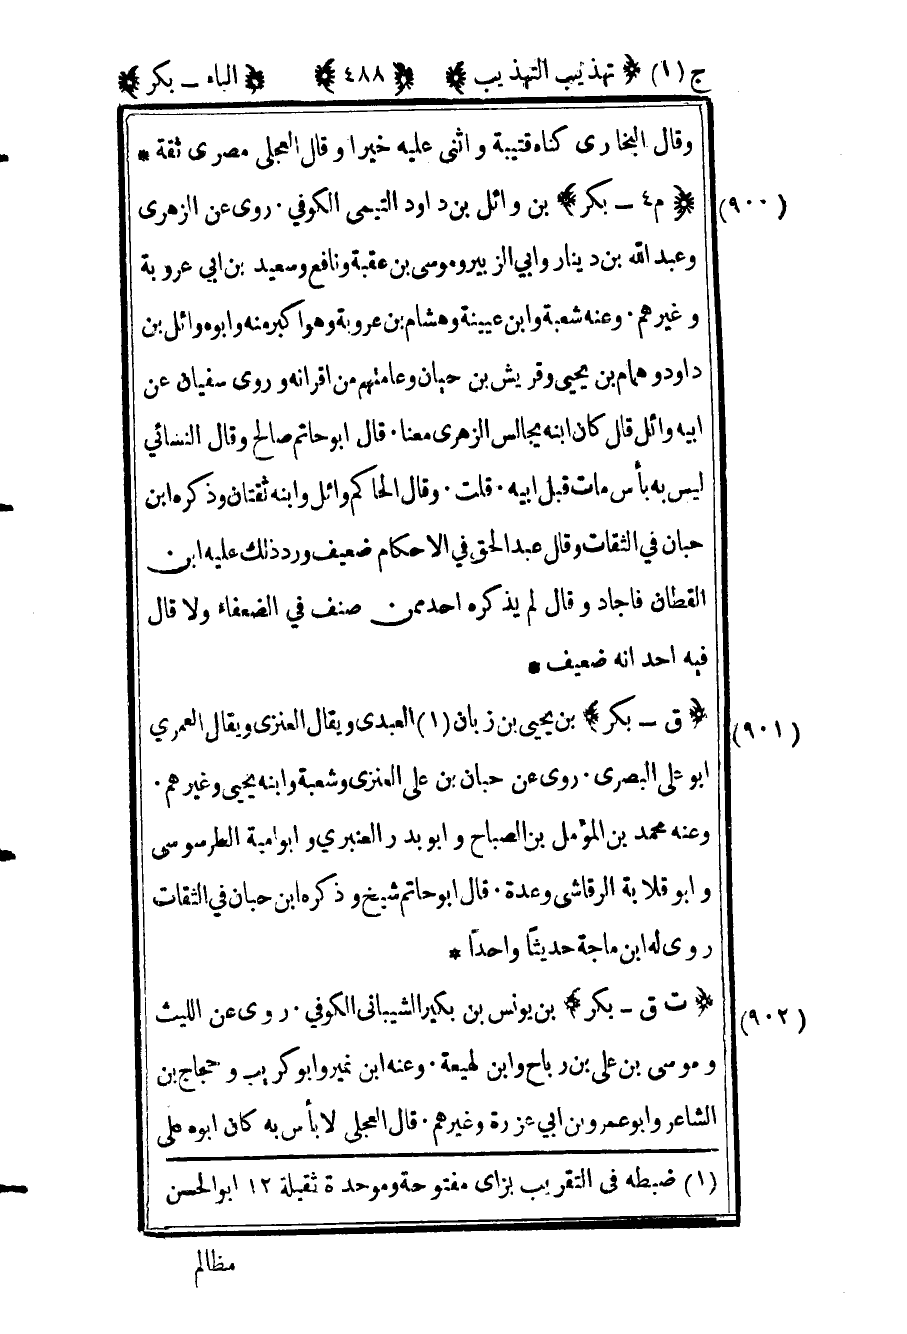 ج (١) ﴿ تهذيب التهذيب ﴾ ﴿ ٤٨٨ ﴾ ﴿ الباء ـ بكر ﴾
وقال البخارى كناه قتيبة واثنى عليه خيرا وقال العجلى مصرى ثقة *
(٩٠٠) ﴿ م٤ ـ بكر ﴾ بن وائل بن داود التيمى الكوفي · روى عن الزهرى
وعبد الله بن دينار وابي الزبير وموسى بن عقبة ونافع وسعيد بن ابي عروبة
وغيرهم · وعنه شعبة وابن عيينة وهشام بن عروبة وهو اكبر منه وابوه وائل بن
داود وهمام بن يحيى وقريش بن حبان وعامتهم من اقرانه وروى سفيان عن
ابيه وائل قال كان ابنه يجالس الزهرى معنا · قال ابو حاتم صالح وقال النسائي
ليس به بأس مات قبل ابيه · قلت · وقال الحاكم وائل وابنه ثقتان وذكره ابن
حبان في الثقات وقال عبد الحق في الاحكام ضعيف ورد ذلك عليه ابن
القطان فاجاد وقال لم يذكره احد ممن صنف في الضعفاء ولا قال
فيه احد انه ضعيف *
(٩٠١) ﴿ ق ـ بكر ﴾ بن يحيى بن زبان (١) العبدى ويقال العنزى ويقال العمري
ابو على البصرى · روى عن حبان بن على العنزى وشعبة وابنه يحيى وغيرهم ·
وعنه محمد بن المؤمل بن الصباح وابو بدر العنبري وابو امية الطرسوسى
وابو قلابة الرقاشى وعدة · قال ابو حاتم شيخ وذكره ابن حبان في الثقات
روى له ابن ماجة حديثًا واحدًا *
(٩٠٢) ﴿ ت ق ـ بكر ﴾ بن يونس بن بكير الشيبانى الكوفي · روى عن الليث
وموسى بن على بن رباح وابن لهيعة · وعنه ابن نمير وابو كريب وحجاج بن
الشاعر وابو عمرو بن ابي عزرة وغيرهم · قال العجلى لا بأس به كان ابوه على
(١) ضبطه فى التقريب بزاى مفتوحة وموحدة ثقيلة ١٢ ابو الحسن
مظالم